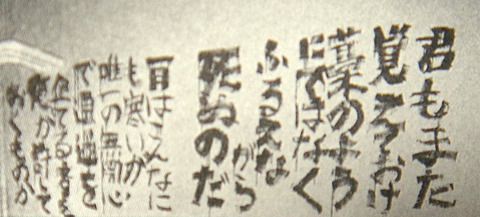 君もまた
覚えておけ
藁のよう
にではなく
ふるえな
がら
死ぬのだ
一月はこんなに
も寒いが
唯一の無関心
で通過を
企てる者を
俺が許して
おくものか